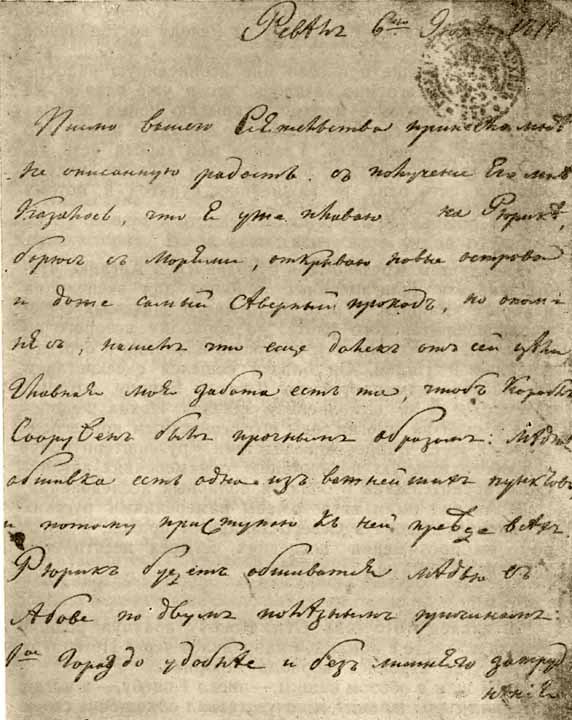 Ревль 6го 1814
Писмо вашего Сіѣтельства принесло мнѣ
не описанную радость. съ получение Его мнѣ
Казалось, что Я уже плаваю на Рюрикѣ,
борюсь съ Морями, открываю новые острова
и даже самый Сѣверный проходъ, но опом-
нясь, нашелъ что еще далекъ отъ сей цели
Главная моя забота есть та, чтобъ Корабль
Сооруженъ былъ прочнымъ образомъ: Мѣдная
обшивка есть одна изъ важнейшихъ пунктовъ
и потому приступаю къ ней прежде всѣхъ.
Рюрикъ будетъ обшиватся мѣдью въ
Абове по двумъ полѣзнымъ причинамъ:
1ое Гораздо удобнѣе и безъ лишняго затруд
нѣнія